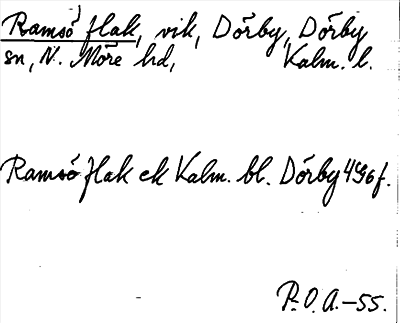 Ramsö flak, vik, Dörby, Dörby
sn, N. Möre hd, Kalm. l.
Ramsö flak ek Kalm. bl. Dörby 4 9o f.
P.O.A.-55.